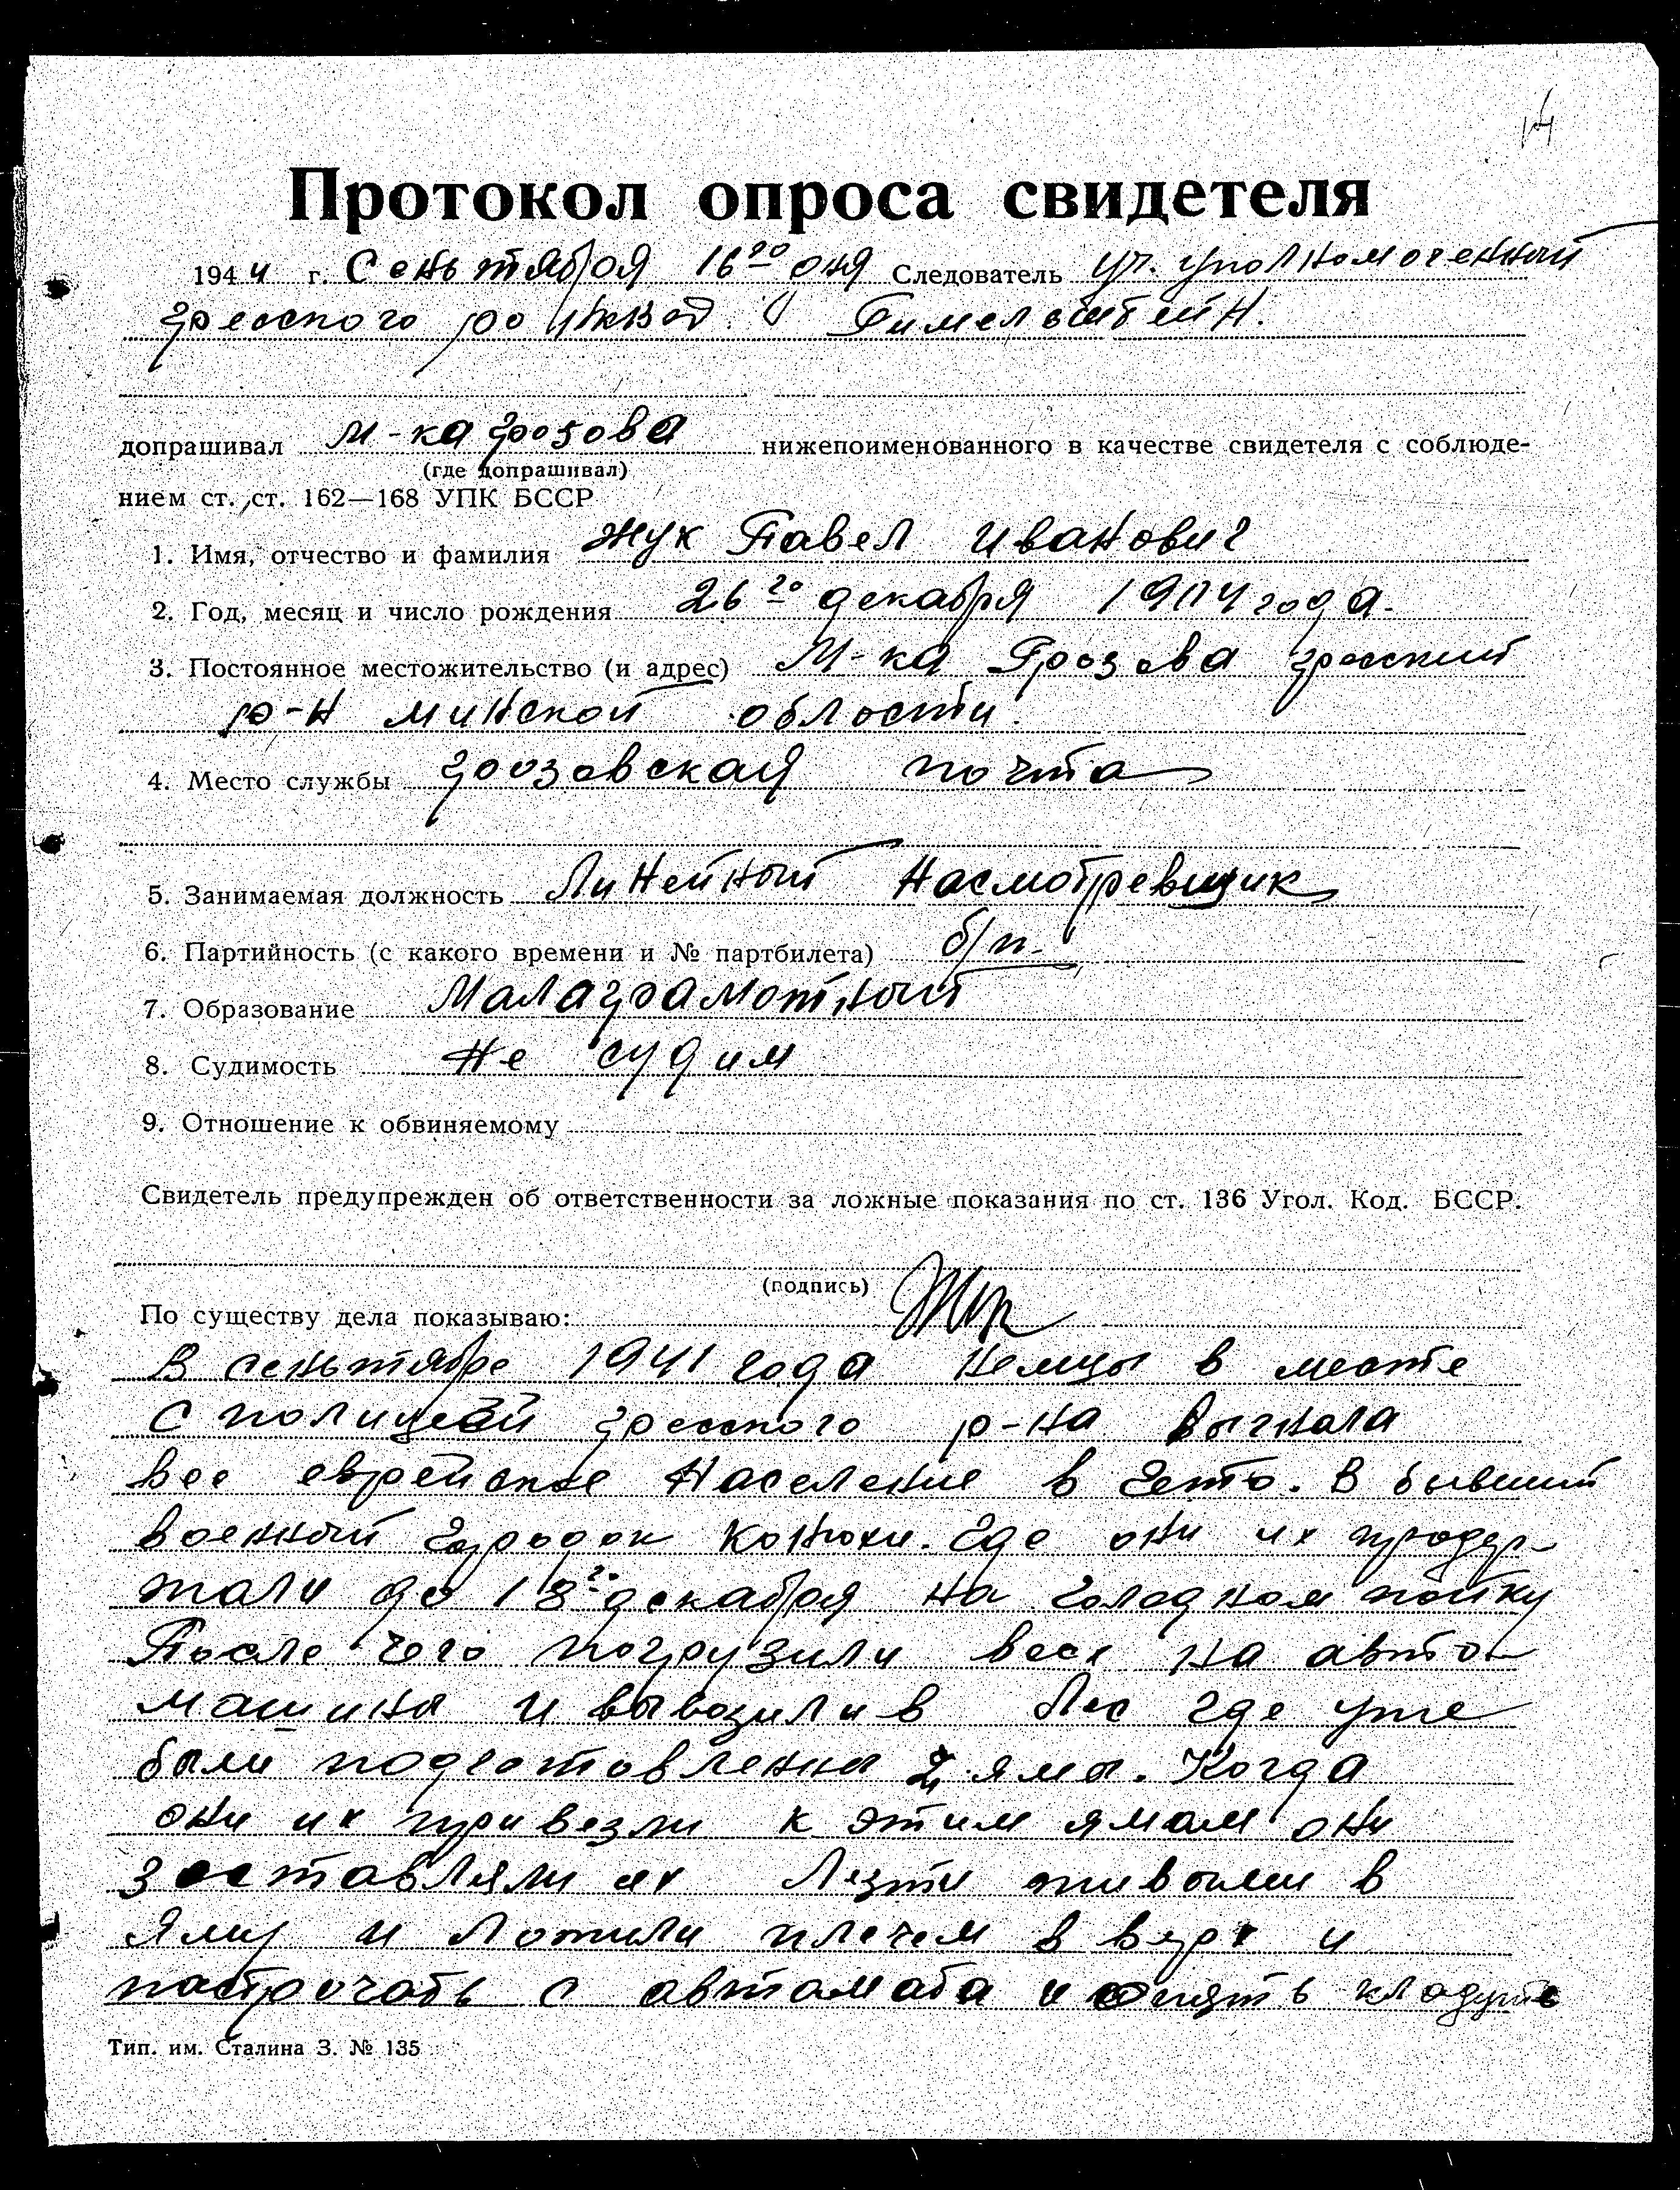 14
Протокол опроса свидетеля
1944 г. Сеньтября 16го дня Следователь уч. уполномоченный
гресского ро НКВД Гимельштейн.
допрашивал м-ка грозова нижепоименованного в качестве свидетеля с соблюде-
(где допрашивал)
нием ст. ст. 162—168 УПК БССР
1. Имя, отчество и фамилия Жук Павел Иванович
2. Год, месяц и число рождения 26го декабря 1904 года.
3. Постоянное местожительство (и адрес) М-ка Грозова гресский
р-н минской области.
4. Место службы грозовская почта
5. Занимаемая должность Линейный насмотревщик
6. Партийность (с какого времени и № партбилета) б/п.
7. Образование Малаграмотный
8. Судимость не судим
9. Отношение к обвиняемому
Свидетель предупрежден об ответственности за ложные показания по ст. 136 Угол. Код. БССР.
(подпись) Жук
По существу дела показываю:
В сеньтябре 1941 года немцы в месте
с полицей гресского р-на выгнала
все еврейское население в гетто. В бывший
военный городок Конюхи. Где они их продер-
жали до 18го декабря на голодном пойку
После чего погрузили всех на авто
машины и вывозили в лес где уже
были подготовленны 2 ямы. Когда
они их привезли к этим ямам они
заставляли их лезти живыми в
яму и ложили плечем в верх и
построчать с автамата и опять кладуть
Тип. им. Сталина З. № 135